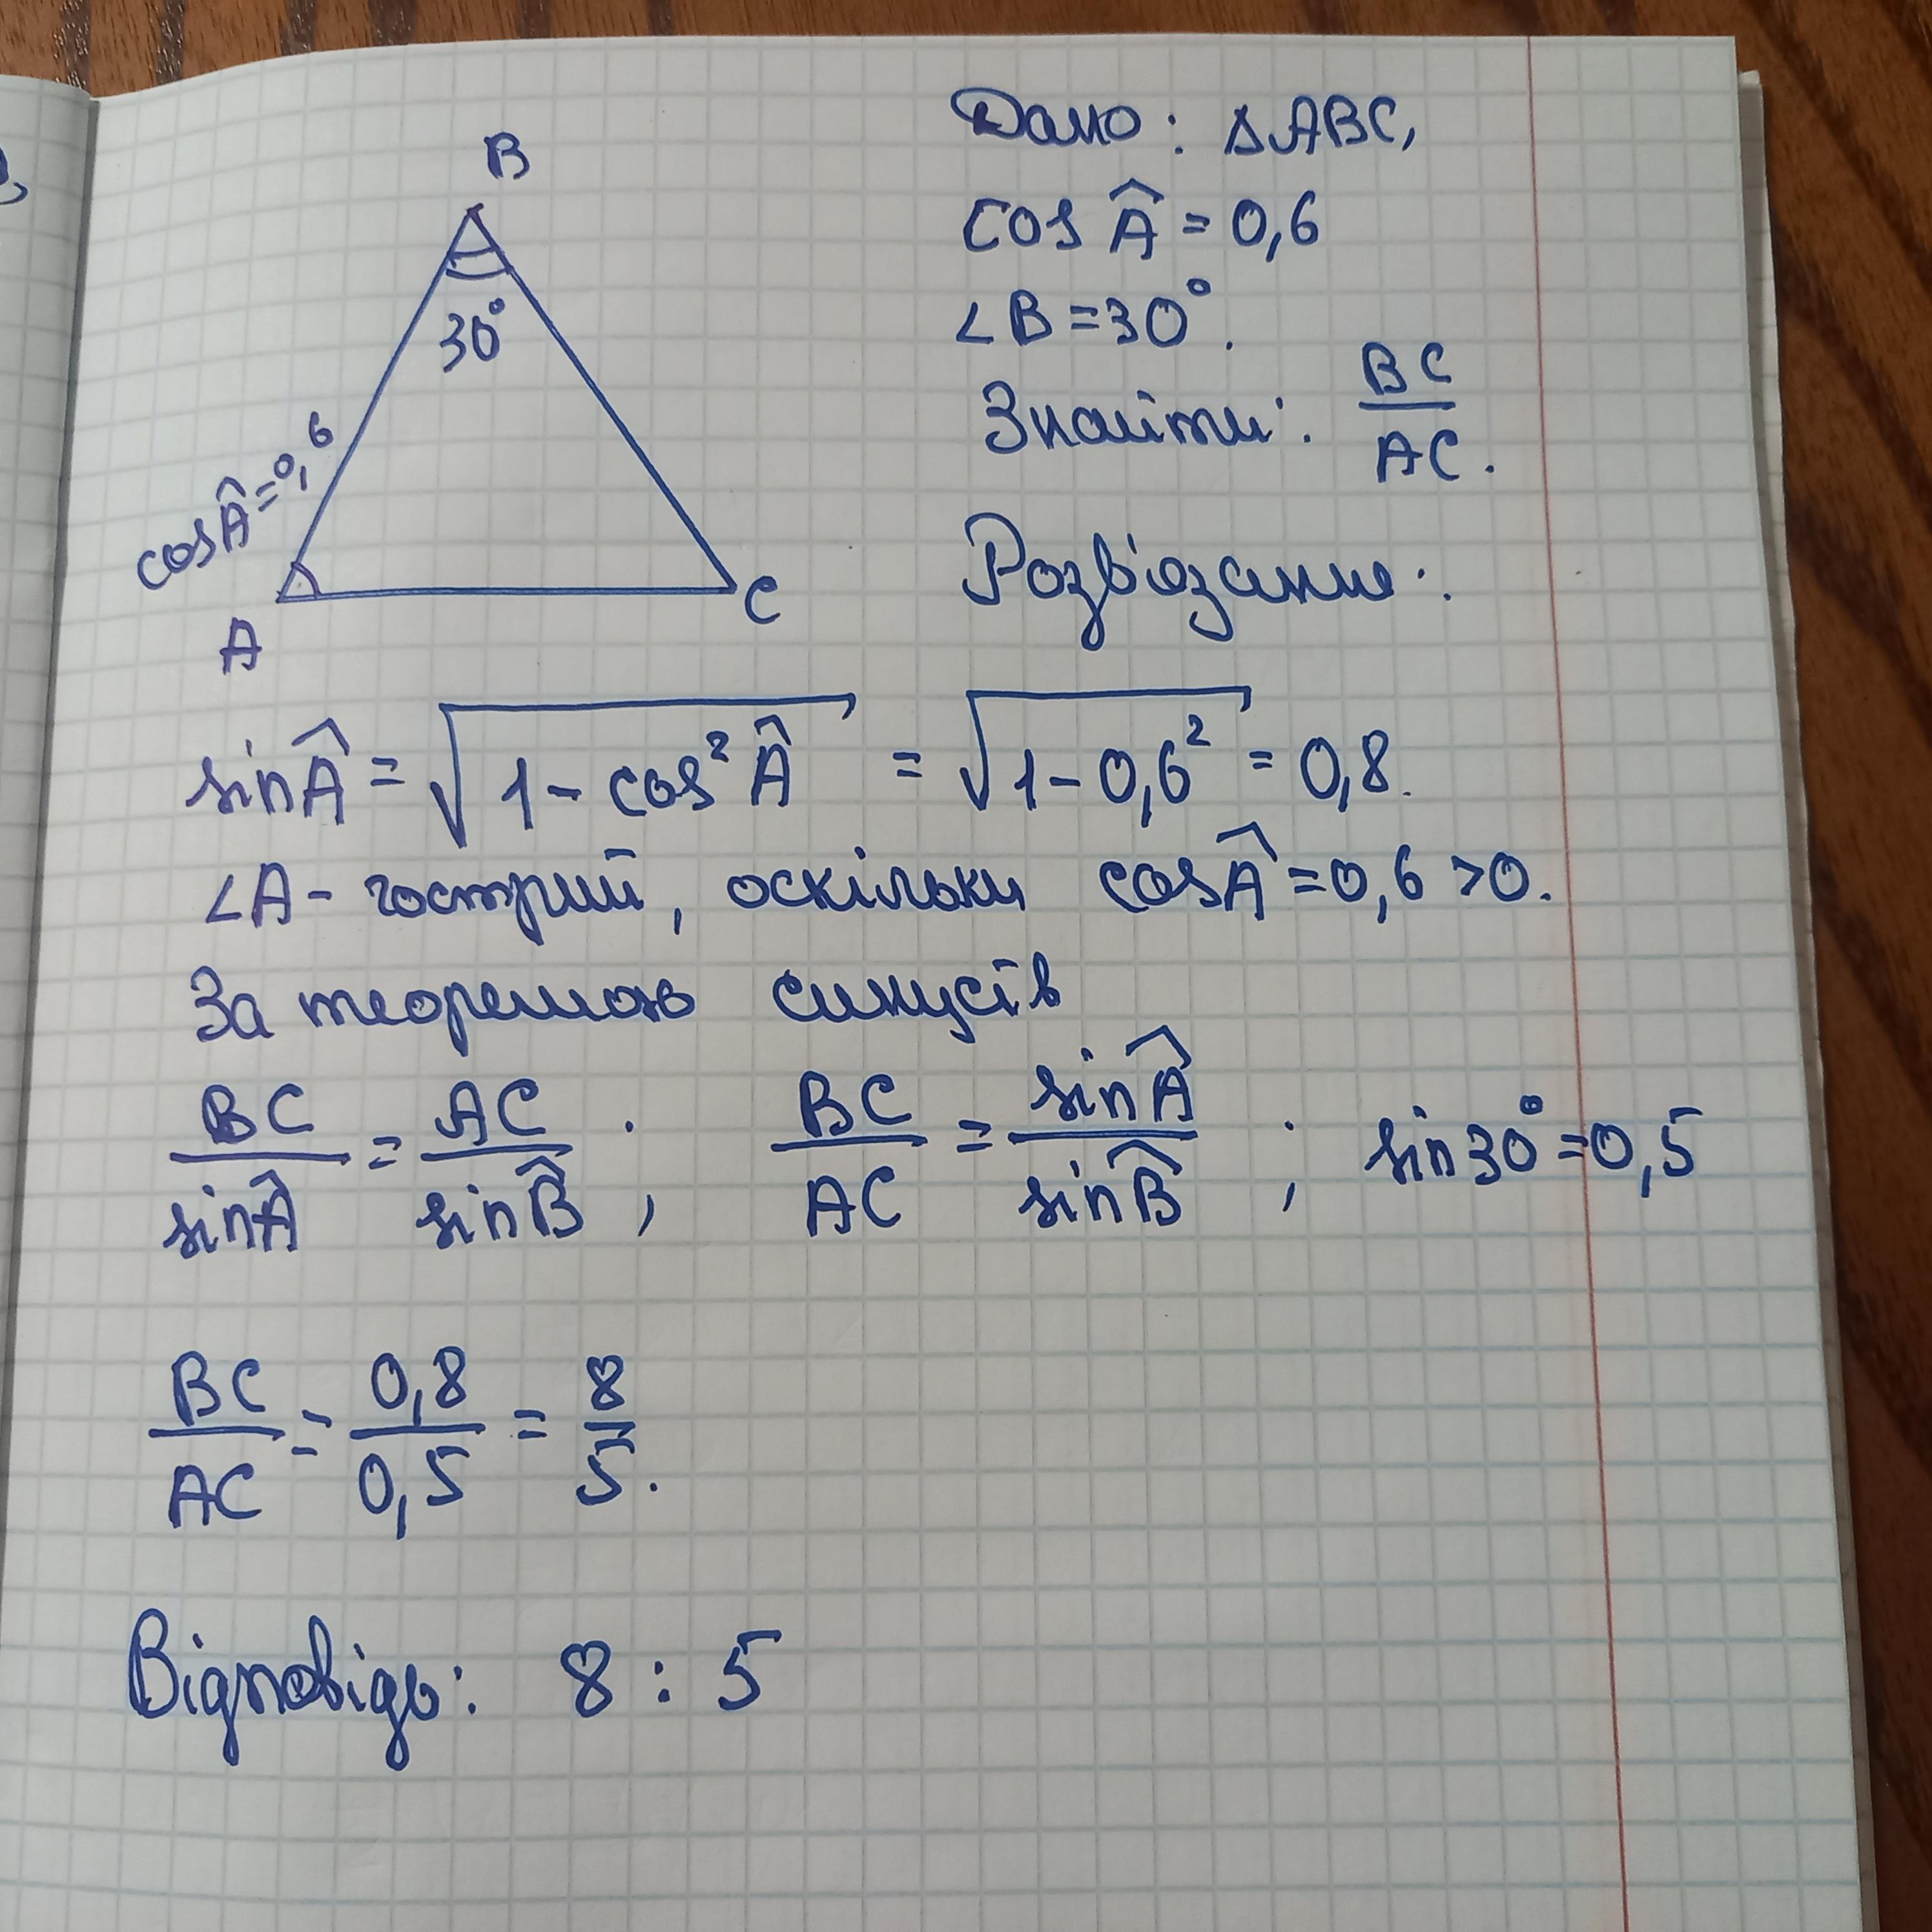 B
30°
cos Â = 0,6
A
C
Дано: △ABC,
cos Â = 0,6
∠B = 30°.
Знайти: BC/AC.
Розв'язання:
sin Â = √(1 - cos² Â) = √(1 - 0,6²) = 0,8.
∠A - гострий, оскільки cos Â = 0,6 > 0.
За теоремою синусів
BC/sin Â = AC/sin B̂; BC/AC = sin Â/sin B̂; sin 30° = 0,5
BC/AC = 0,8/0,5 = 8/5.
Відповідь: 8 : 5